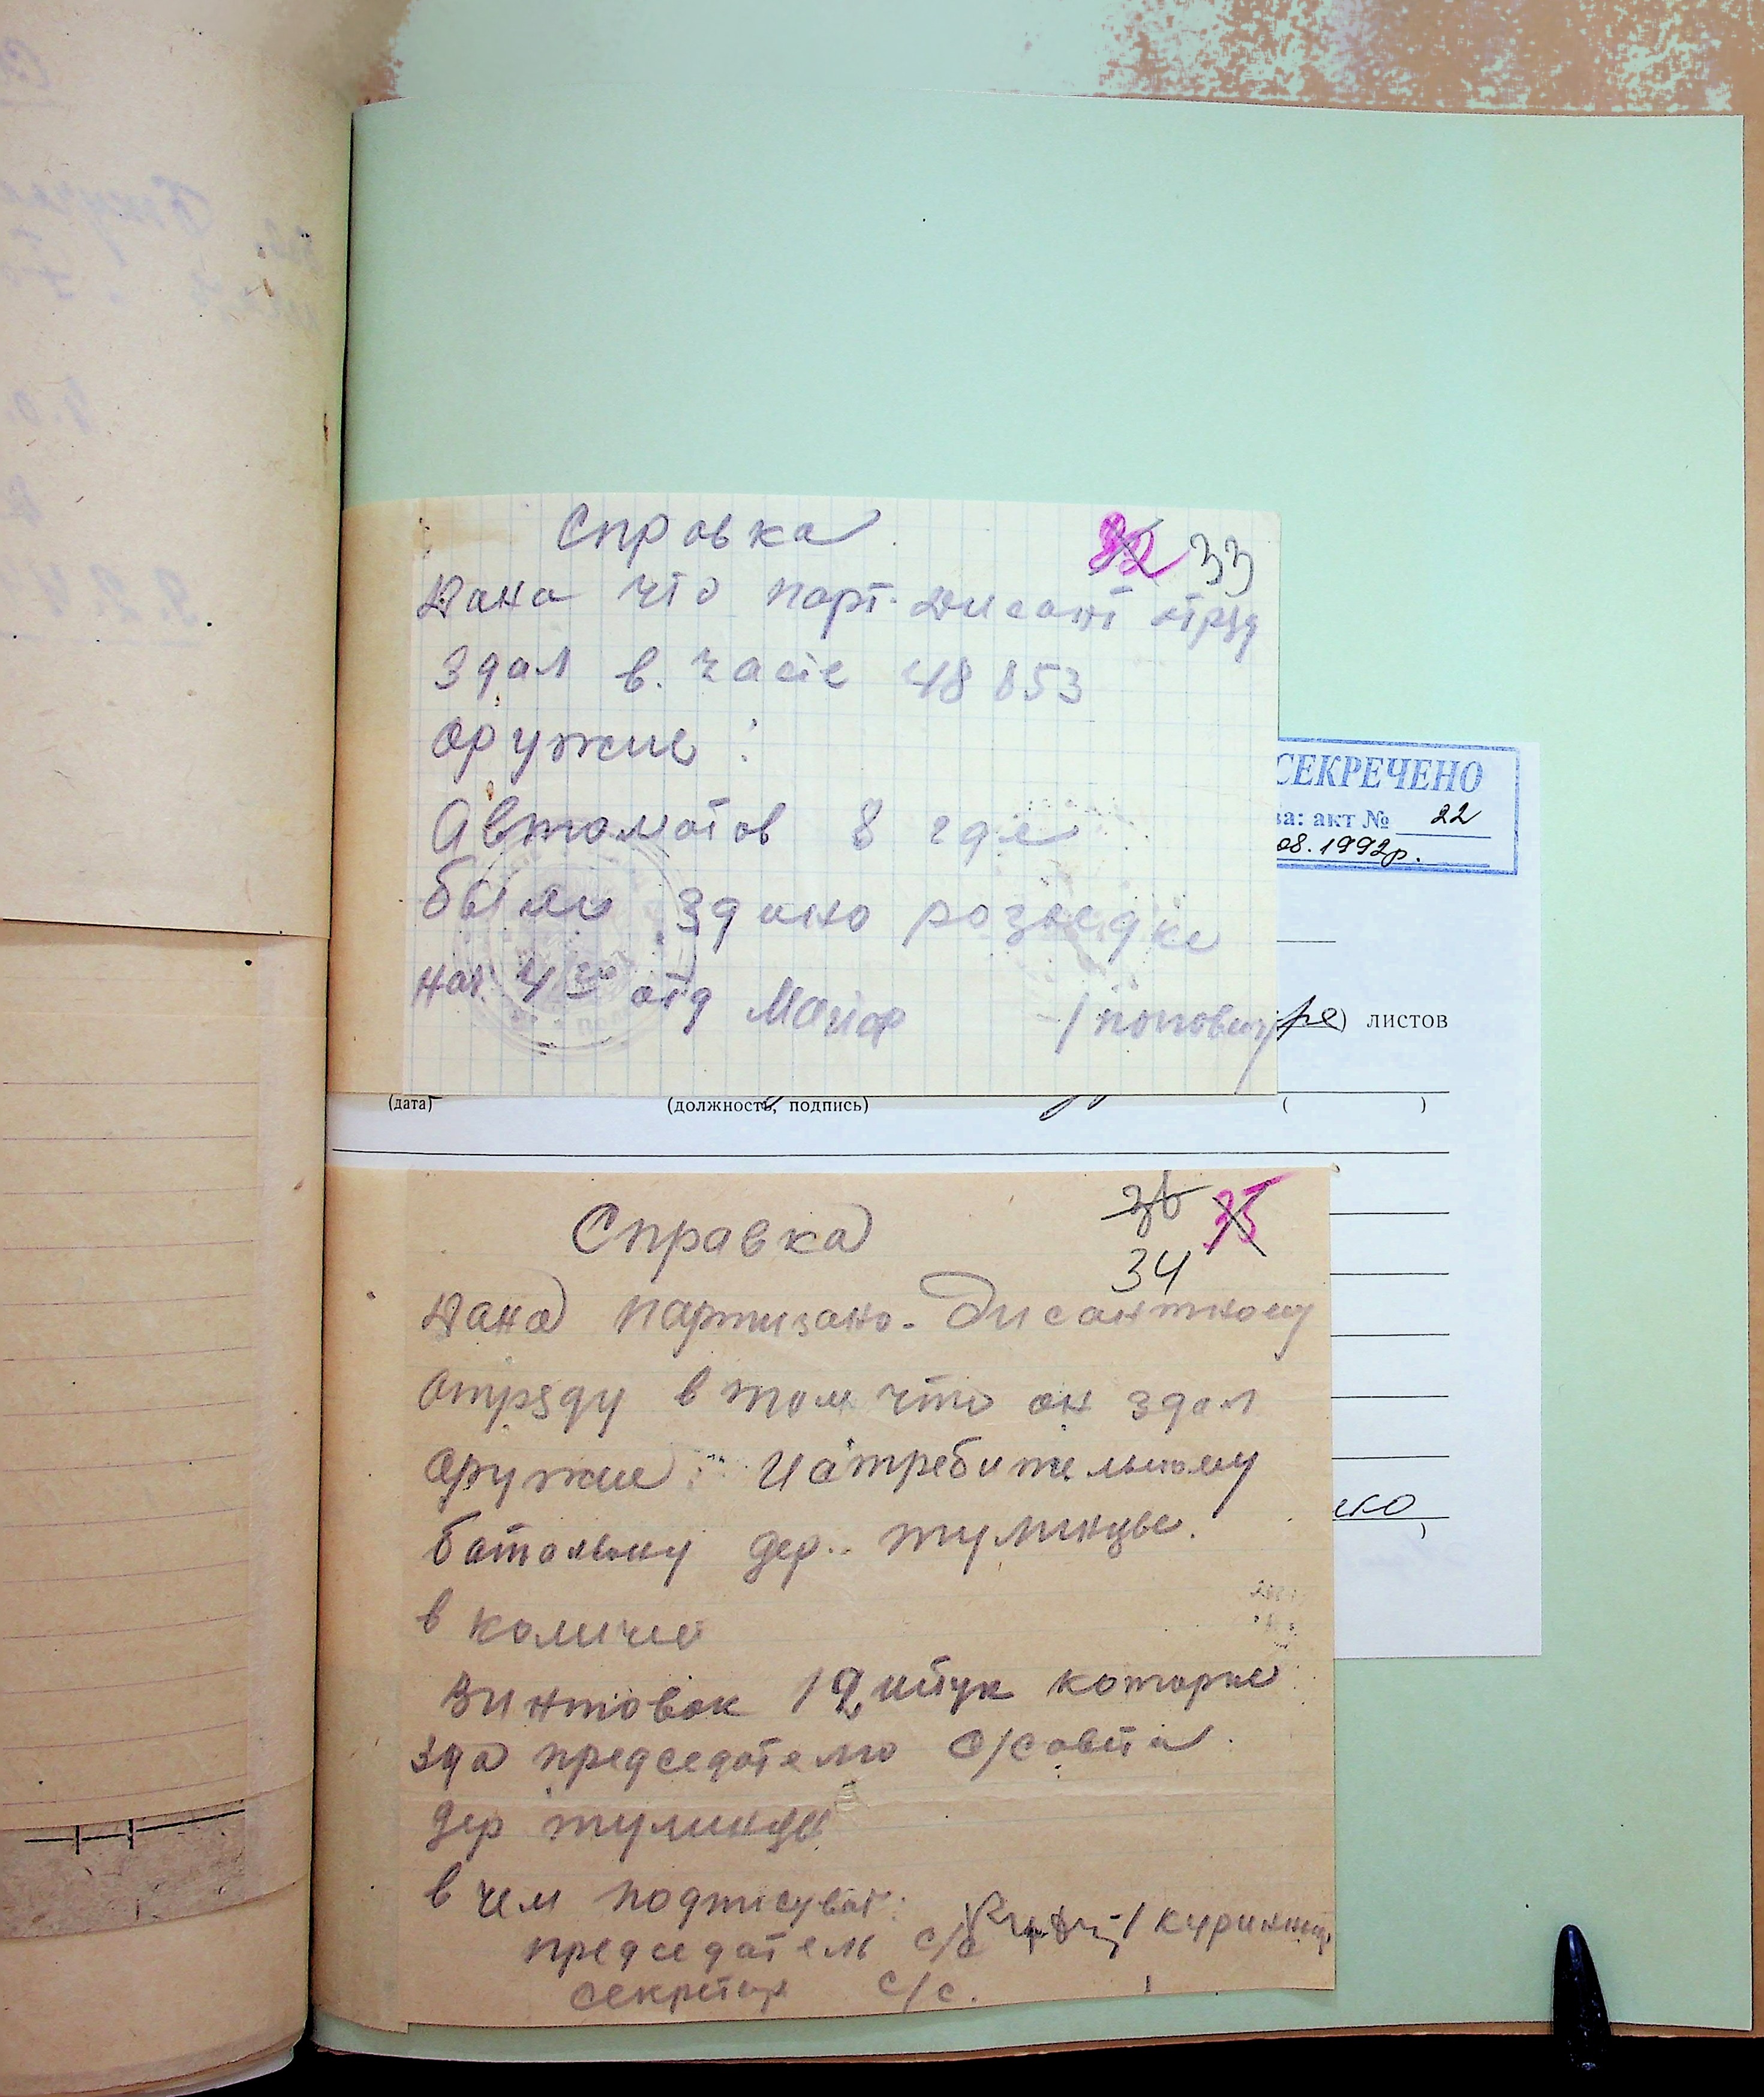 Справка
32 33
Дана что парт. дисант отряд
здал в. часте 48853
оружие:
Автоматов 8 где
были здано розведке
нач 4го отд Майор /попович
СЕКРЕЧЕНО
ва: акт № 22
08.1992р.
ре) листов
(дата) (должность, подпись) ( )
Справка
36 35
34
Дана партизано-Дисантному
отряду в том что он здал
оружие: Истребительному
батальону дер. тулинцы.
в количе
Винтовок 12 штук которые
зда председателю с/совета.
дер тулинцы
в чем подписуват:
председатель с/с /куриленко
секретар с/с.